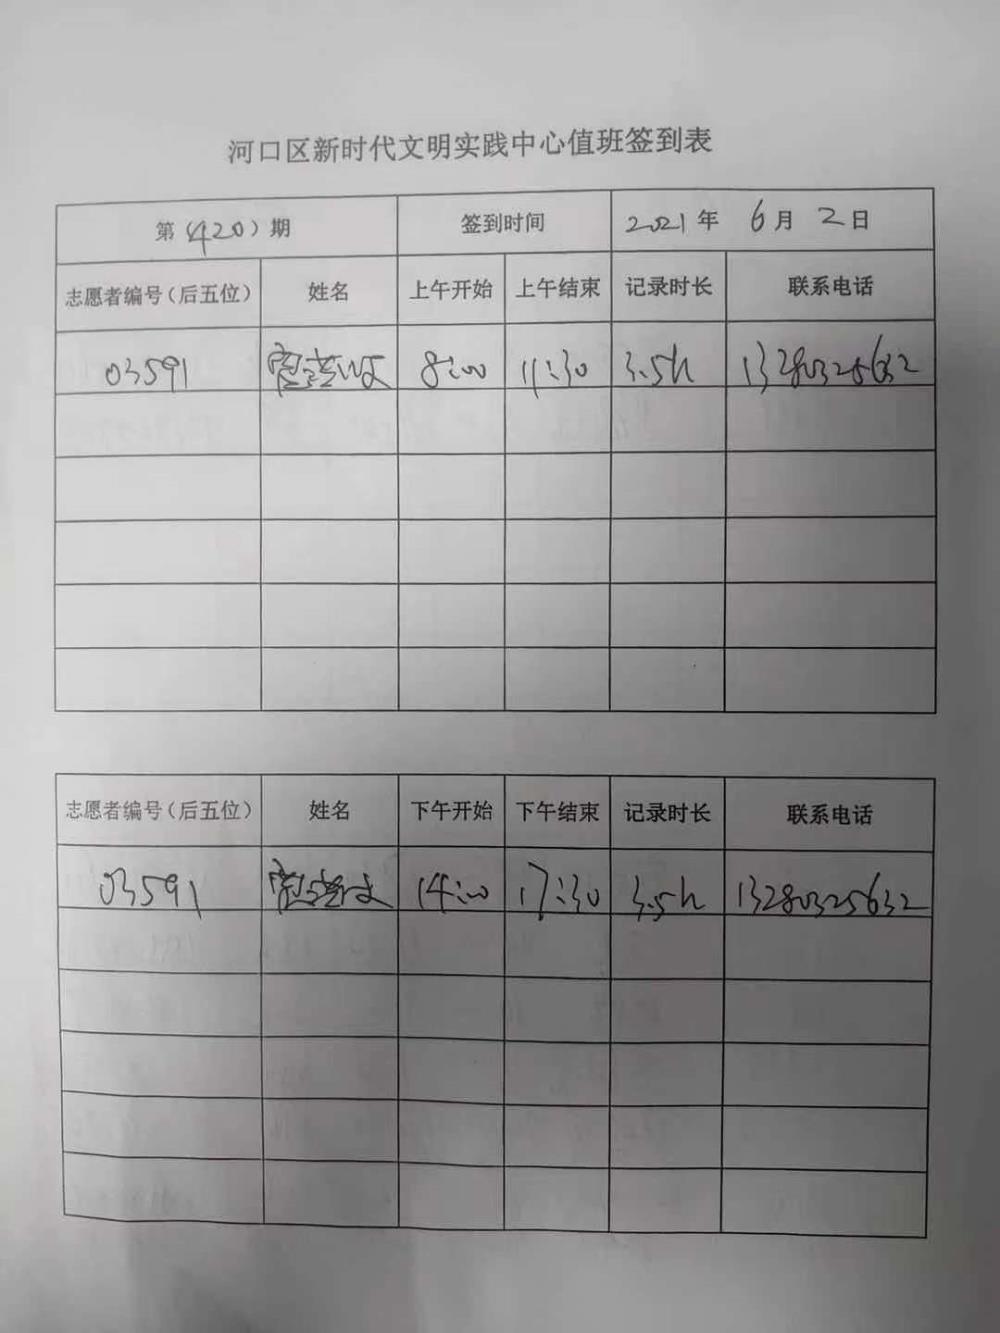 河口区新时代文明实践中心值班签到表
第（420）期 签到时间 2021年 6月 2日
志愿者编号（后五位） 姓名 上午开始 上午结束 记录时长 联系电话
03591 8:00 11:30 3.5h 13280325632
志愿者编号（后五位） 姓名 下午开始 下午结束 记录时长 联系电话
03591 14:00 17:30 3.5h 13280325632